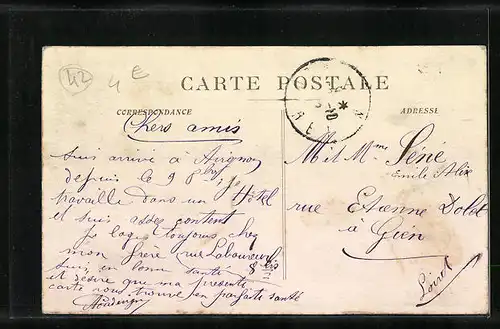 42
4 €
CARTE POSTALE
CORRESPONDANCE
ADRESSE
Chers amis
suis arrivé à Avignon
depuis le 9 8bre je
travaille dans un Hôtel
et suis assez content
je loge toujours chez
mon frère rue Laboureur
suis en bonne santé 8
et désire que ma présente
carte vous trouve en parfaite santé
M et Mme Séné
Emile Alix
rue Etienne Dolet
à Gien
Loiret